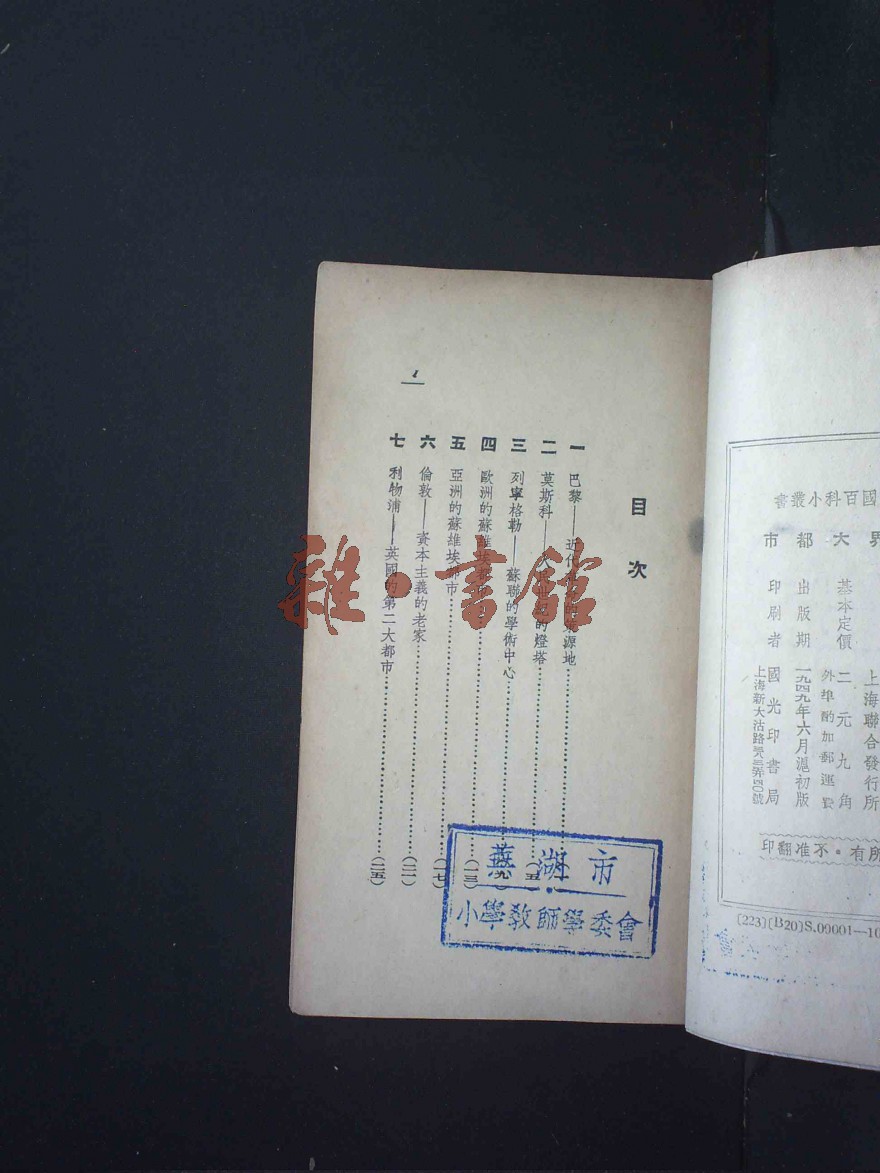 國百科小叢書
界大都市
上海聯合發行所
基本定價 二元九角
外埠酌加郵運費
出版期 一九四九年六月滬初版
印刷者 國光印書局
上海新大沽路
所有・不准翻印
(223)(B20)S.09001—10
目次
一 巴黎——近代
源地
二 莫斯科——
的燈塔
(五)
三 列寧格勒——蘇聯的學術中心
(九)
四 歐洲的蘇維埃都市
(一三)
五 亞洲的蘇維埃都市
(一七)
六 倫敦——資本主義的老家
(二一)
七 利物浦——英國的第二大都市
(二五)
蕪湖市
小學教師學委會
雜・書館